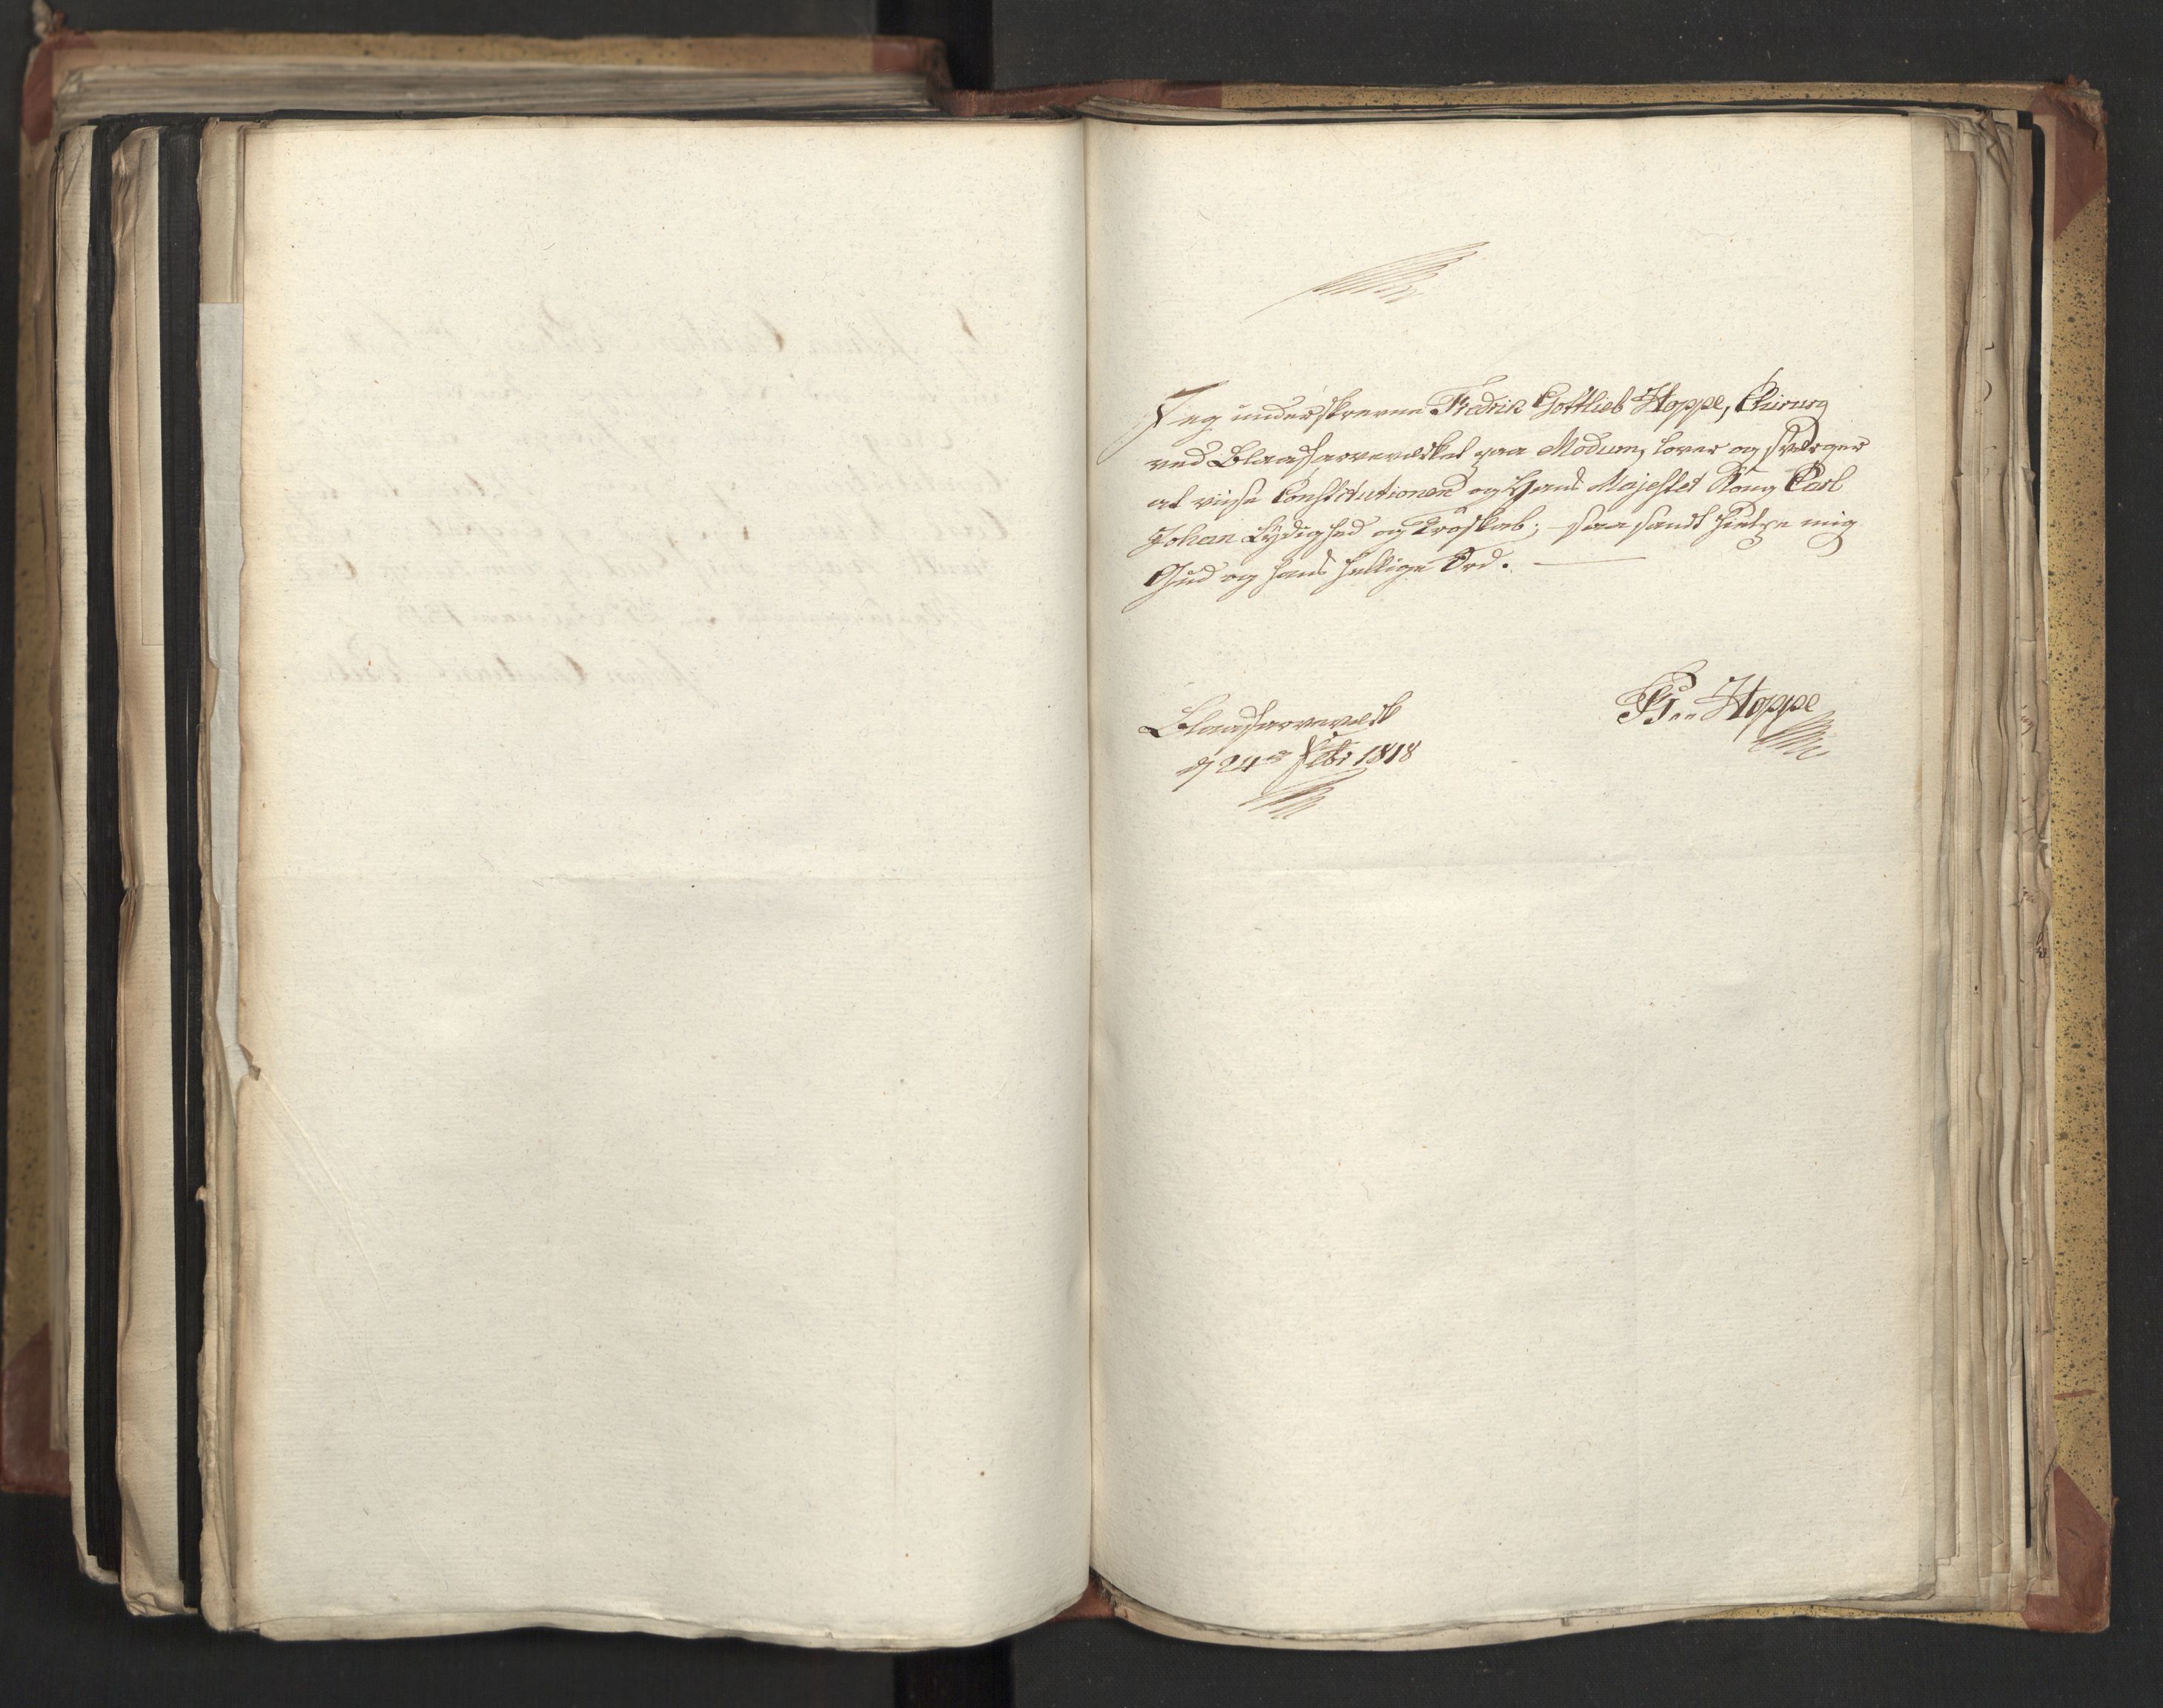 Jeg underskrevne Fredrik Gottlieb Hoppe, Chirurg
ved Blaafarveværket paa Modum, lover og sværger
at viise Constitutionen og Hans Majestet Kong Carl
Johan Lydighed og Troskab; saa sandt hielpe mig
Gud og hans hellige Ord.
Hoppe
Blaafarveværk
d 24de Febr 1818